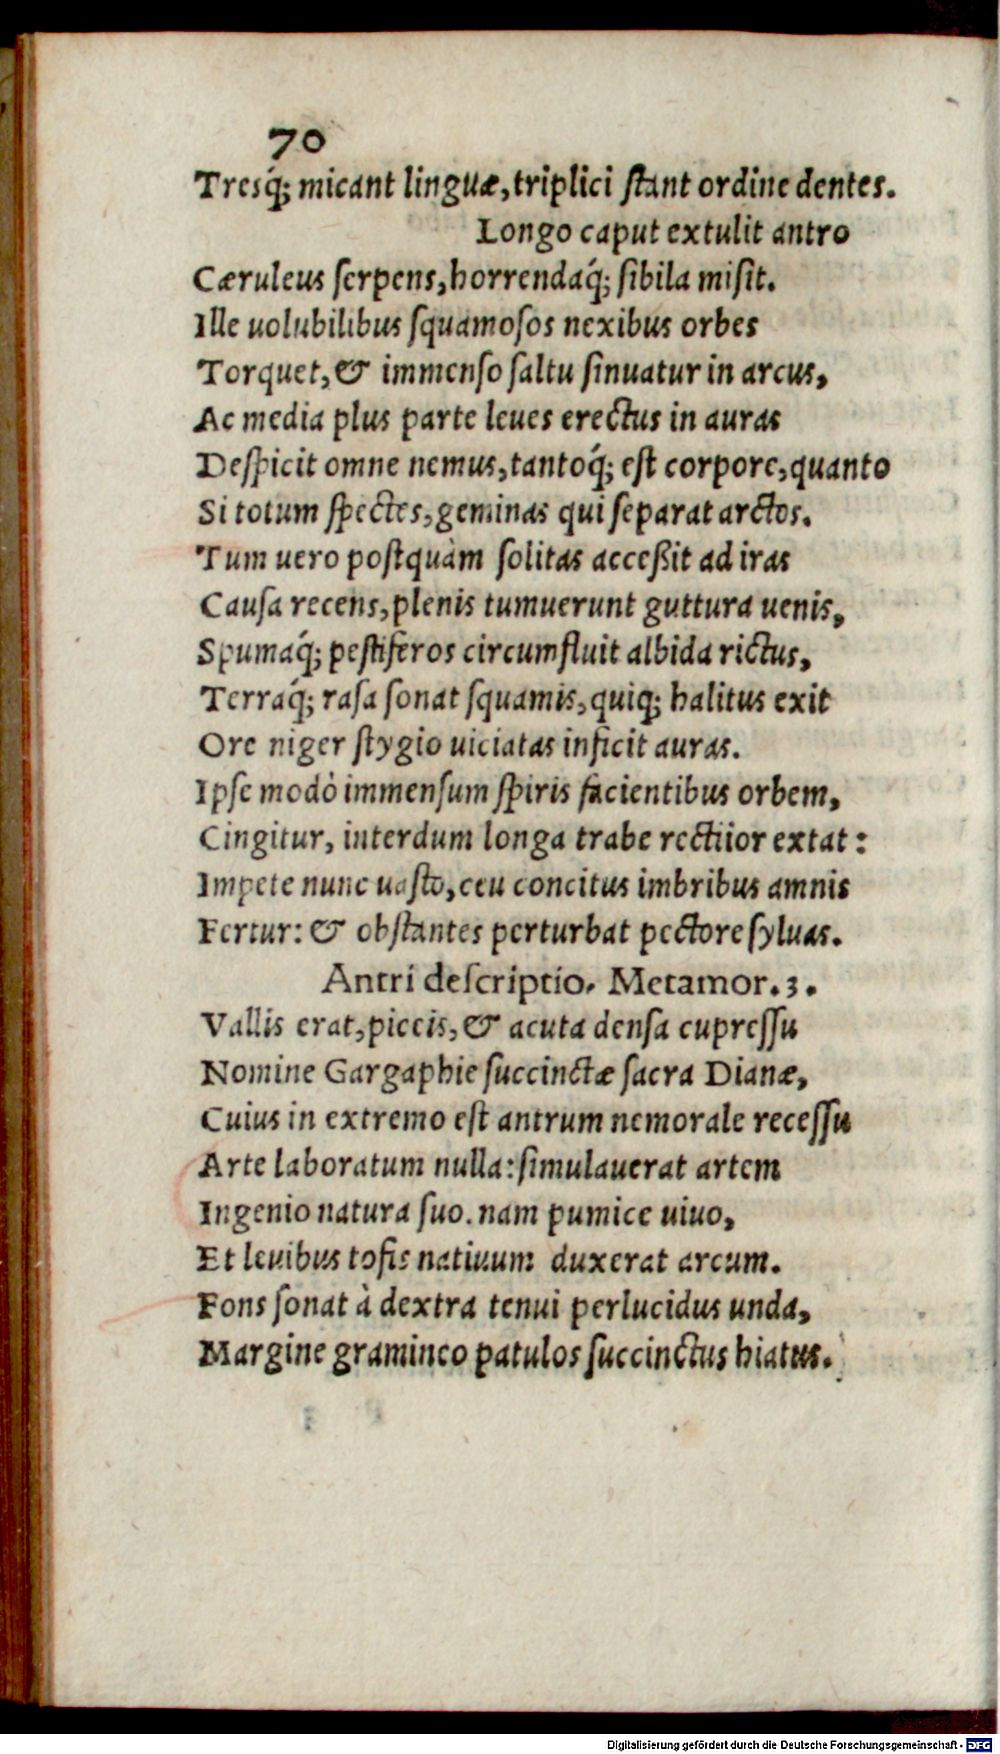 70
Tresq́; micant linguæ, triplici ſtant ordine dentes.
Longo caput extulit antro
Cæruleus ſerpens, horrendaq́; ſibila miſit.
Ille uolubilibus ſquamoſos nexibus orbes
Torquet, & immenſo ſaltu ſinuatur in arcus,
Ac media plus parte leues erectus in auras
Deſpicit omne nemus, tantoq́; eſt corpore, quanto
Si totum ſpectes, geminas qui ſeparat arctos.
Tum uero poſtquàm ſolitas acceßit ad iras
Cauſa recens, plenis tumuerunt guttura uenis,
Spumaq́; peſtiferos circumfluit albida rictus,
Terraq́; raſa ſonat ſquamis, quiq; halitus exit
Ore niger ſtygio uiciatas inficit auras.
Ipſe modò immenſum ſpiris facientibus orbem,
Cingitur, interdum longa trabe rectiior extat:
Impete nunc uaſto, ceu concitus imbribus amnis
Fertur: & obſtantes perturbat pectore ſyluas.
Antri deſcriptio. Metamor. 3.
Vallis erat, piceis, & acuta denſa cupreſſu
Nomine Gargaphie ſuccinctæ ſacra Dianæ,
Cuius in extremo eſt antrum nemorale receſſu
Arte laboratum nulla: ſimulauerat artem
Ingenio natura ſuo. nam pumice uiuo,
Et leuibus tofis natiuum duxerat arcum.
Fons ſonat à dextra tenui perlucidus unda,
Margine gramineo patulos ſuccinctus hiatus.
Digitalisierung gefördert durch die Deutsche Forschungsgemeinschaft - DFG